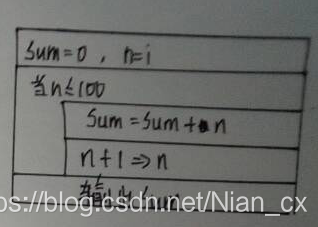 sum=0 , n=i
当n≤100
sum=sum+n
n+1⇒n
输出sum
ps://blog.csdn.net/Nian_cx